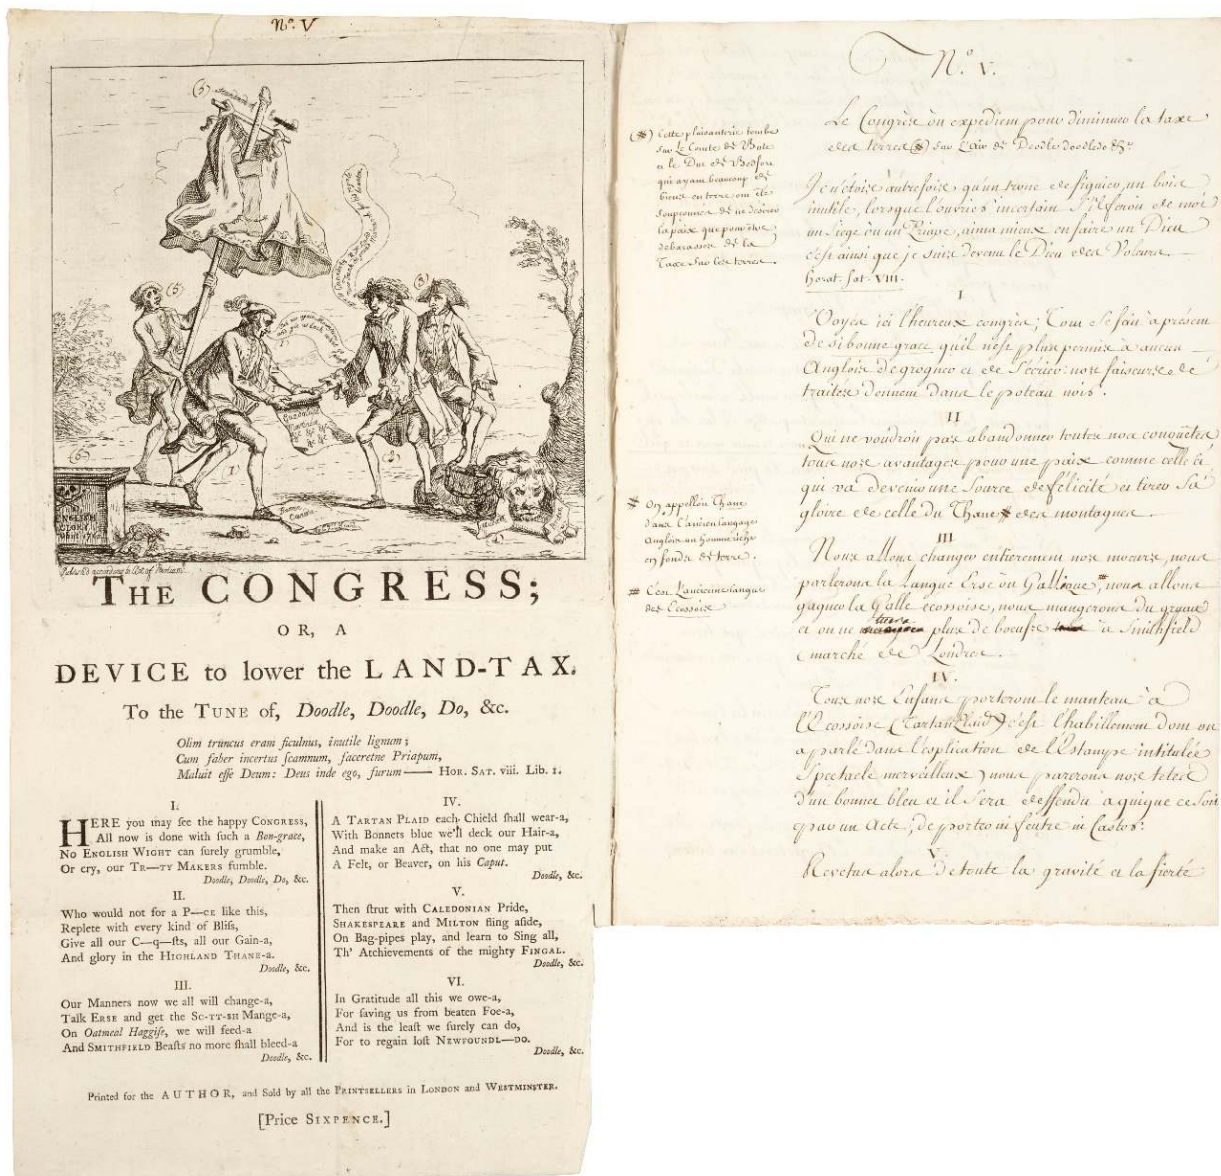 No. V
(5)
(5)
(3)
(6)
(1)
(2)
ENGLISH
GLORY
Obiit 1762
Publish'd according to Act of Parliamt.
THE CONGRESS;
OR, A
DEVICE to lower the LAND-TAX.
To the TUNE of, Doodle, Doodle, Do, &c.
Olim truncus eram ficulnus, inutile lignum;
Cum faber incertus ſcamnum, faceretne Priapum,
Maluit eſſe Deum: Deus inde ego, furum—— HOR. SAT. viii. Lib. 1.
I.
HERE you may ſee the happy CONGRESS,
All now is done with ſuch a Bon-grace,
No ENGLISH WIGHT can ſurely grumble,
Or cry, our TR—TY MAKERS fumble.
Doodle, Doodle, Do, &c.
II.
Who would not for a P—CE like this,
Replete with every kind of Bliſs,
Give all our C—q—ſts, all our Gain-a,
And glory in the HIGHLAND THANE-a.
Doodle, &c.
III.
Our Manners now we all will change-a,
Talk ERSE and get the SC-TT-SH Mange-a,
On Oatmeal Haggiſe, we will feed-a
And SMITHFIELD Beaſts no more ſhall bleed-a
Doodle, &c.
IV.
A TARTAN PLAID each Chield ſhall wear-a,
With Bonnets blue we'll deck our Hair-a,
And make an Act, that no one may put
A Felt, or Beaver, on his Caput.
Doodle, &c.
V.
Then ſtrut with CALEDONIAN Pride,
SHAKESPEARE and MILTON fling aſide,
On Bag-pipes play, and learn to Sing all,
Th' Atchievements of the mighty FINGAL.
Doodle, &c.
VI.
In Gratitude all this we owe-a,
For ſaving us from beaten Foe-a,
And is the leaſt we ſurely can do,
For to regain loſt NEWFOUNDL—DO.
Doodle, &c.
Printed for the AUTHOR, and Sold by all the PRINTSELLERS in LONDON and WESTMINSTER.
[Price SIXPENCE.]
No. V.
Le Congrès ou expedient pour diminuer la taxe
des terres (#) sur l'air de Doodle doodle do &c.
(#) Cette plaisanterie tombe
sur Le Comte de Bute
et le Duc de Bedford
qui ayant beaucoup de
biens en terre ont été
soupçonnés de ne désirer
la paix que pour être
debarassés de la
Taxe sur les terres.
Je n'étois autrefois qu'un tronc de figuier, un bois
inutile, lorsque l'ouvrier incertain s'il feroit de moi
un siege ou un Priape, aima mieux en faire un Dieu
c'est ainsi que je suis devenu le Dieu des Voleurs.
horat. sat. VIII.
I
Voyés ici l'heureux congrès; Tout se fait à présent
de si bonne grace qu'il n'est plus permis à aucun
Anglois de grogner et de s'écrier: nos faiseurs de
traités donnent dans le poteau noir.
II
Qui ne voudroit pas abandonner toutes nos conquêtes,
tous nos avantages pour une paix comme celle ci
qui va devenir une source de félicité et tirer sa
gloire de celle du Thane # des montagnes.
# On appelloit Thane
dans l'ancien langage
Anglois un homme riche
en fonds de terre.
III
Nous allons changer entierement nos moeurs, nous
parlerons la Langue Erse ou Gallique #, nous allons
gagner la Galle ecossoise, nous mangerons du gruau
et on ne tuera plus de boeufs à Smithfield
(marché de Londres.
# C'est l'ancienne langue
des Ecossois
IV.
Tous nos Enfans porteront le manteau à
l'Ecossoise (Tartan Plaid) c'est l'habillement dont on
a parlé dans l'explication de l'Estampe intitulée
Spectacle merveilleux) nous parerons nos têtes
d'un bonnet bleu et il sera deffendu à quique ce soit
par un Acte, de porter ni feutre ni Castor.
V.
Revetus alors de toute la gravité et la fierté